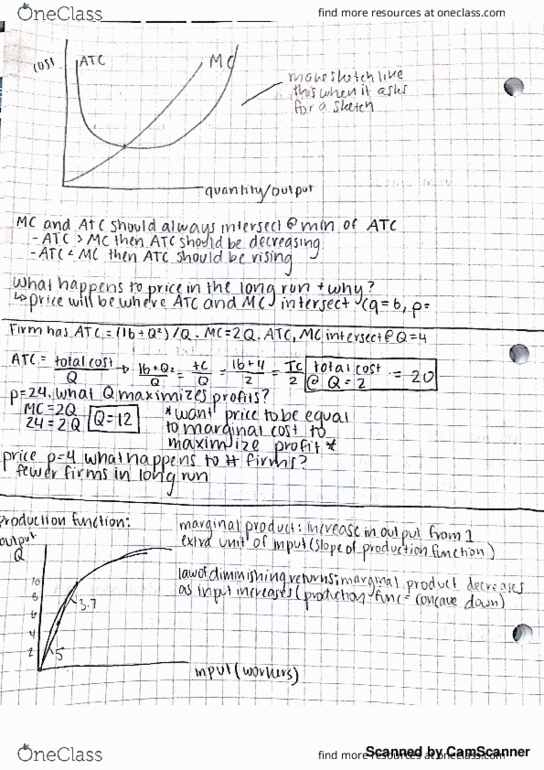 OneClass
find more resources at oneclass.com
cost
ATC
MC
make sketch like
this when it asks
for a sketch
quantity/output
MC and ATC should always intersect @ min of ATC
- ATC > MC then ATC should be decreasing
- ATC < MC then ATC should be rising
what happens to price in the long run + why?
↳ price will be where ATC and MC intersect (q=6, p=
Firm has ATC = (16+Q²)/Q. MC=2Q. ATC, MC intersect @ Q=4
ATC = total cost/Q → 16+Q²/Q = TC/Q = 16+4/2 = TC/2 total cost @ Q=2 = 20
p=24. what Q maximizes profits?
MC=2Q
24=2Q Q=12
*want price to be equal
to marginal cost to
maximize profit*
price p=4 what happens to # firms?
fewer firms in long run
production function:
marginal product: increase in output from 1
extra unit of input (slope of production function)
law of diminishing returns: marginal product decreases
as input increases (production func = concave down)
output
Q
10
8
6
4
2
3.7
5
input (workers)
OneClass
find more resources at oneclass.com
Scanned by CamScanner